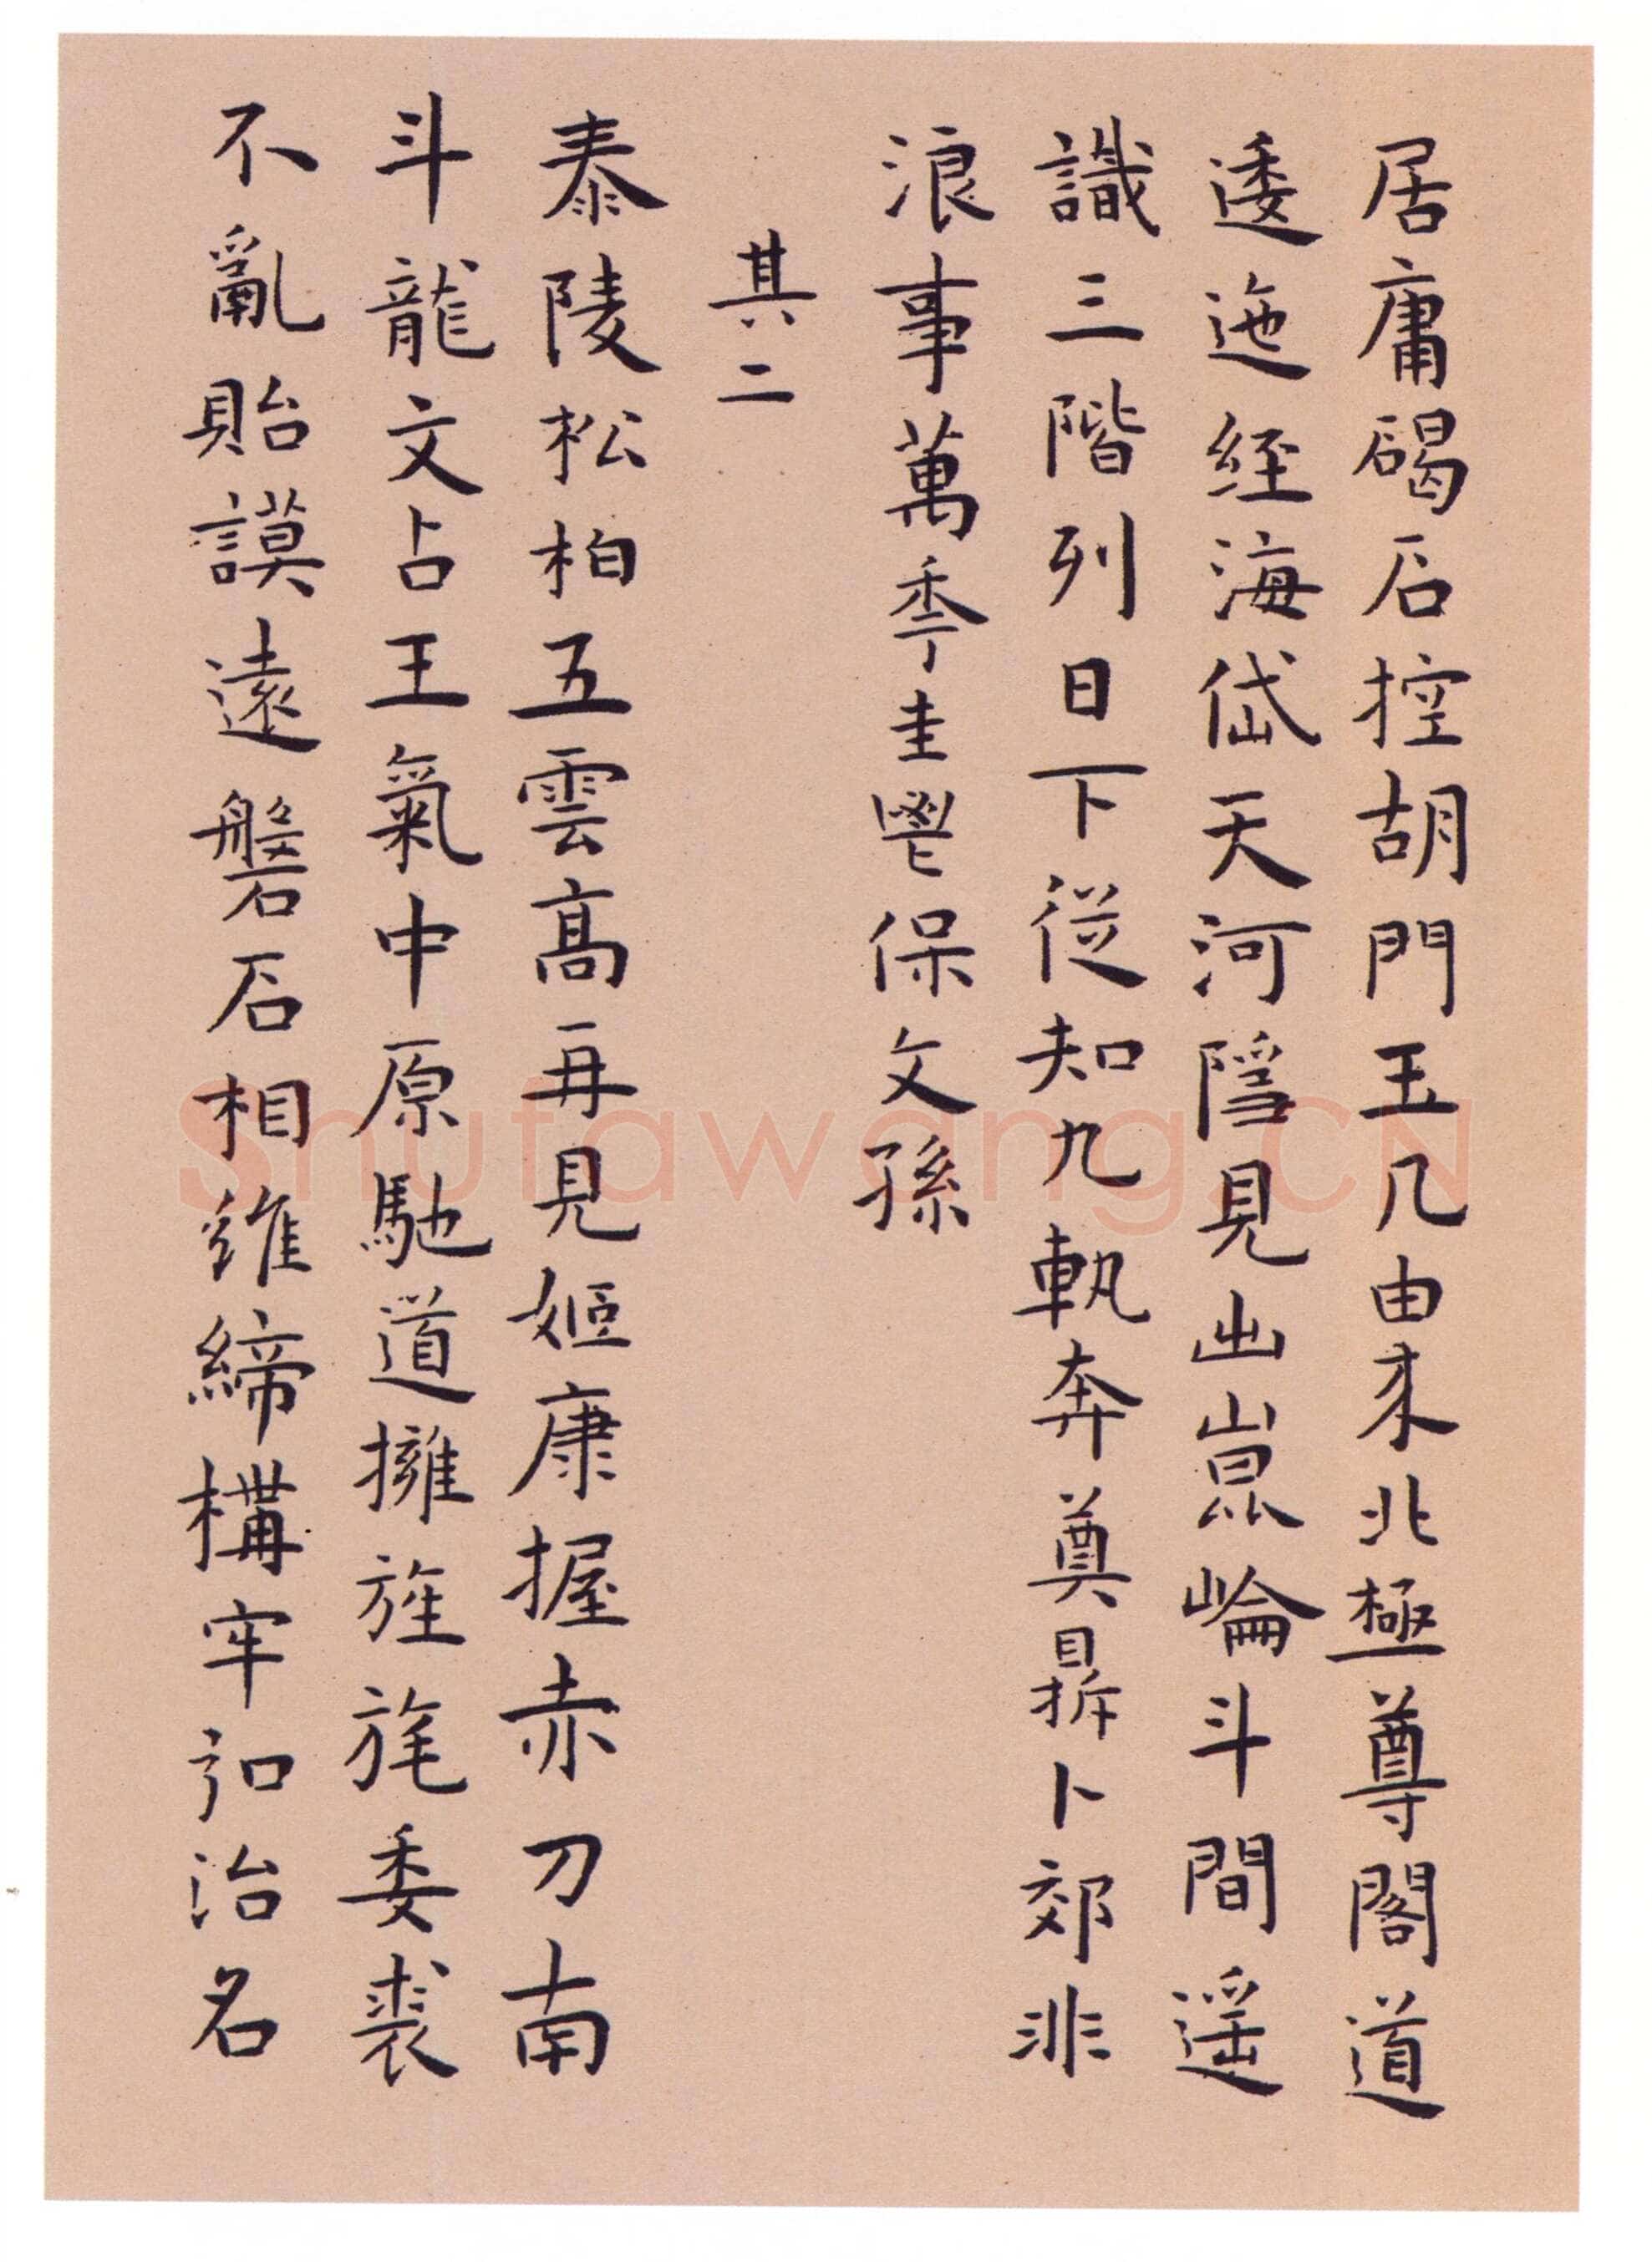 居庸碣石控胡門玉几由来北極尊閣道
逶迤經海岱天河隱見出崑崙斗間遥
識三階列日下從知九軌奔奠鼎卜郊非
浪事萬季圭鬯保文孫
其二
泰陵松柏五雲高再見姬康握赤刀南
斗龍文占王氣中原馳道擁旌旄委裘
不亂貽謨遠磐石相維締構牢詔治名
Shufawang.CN